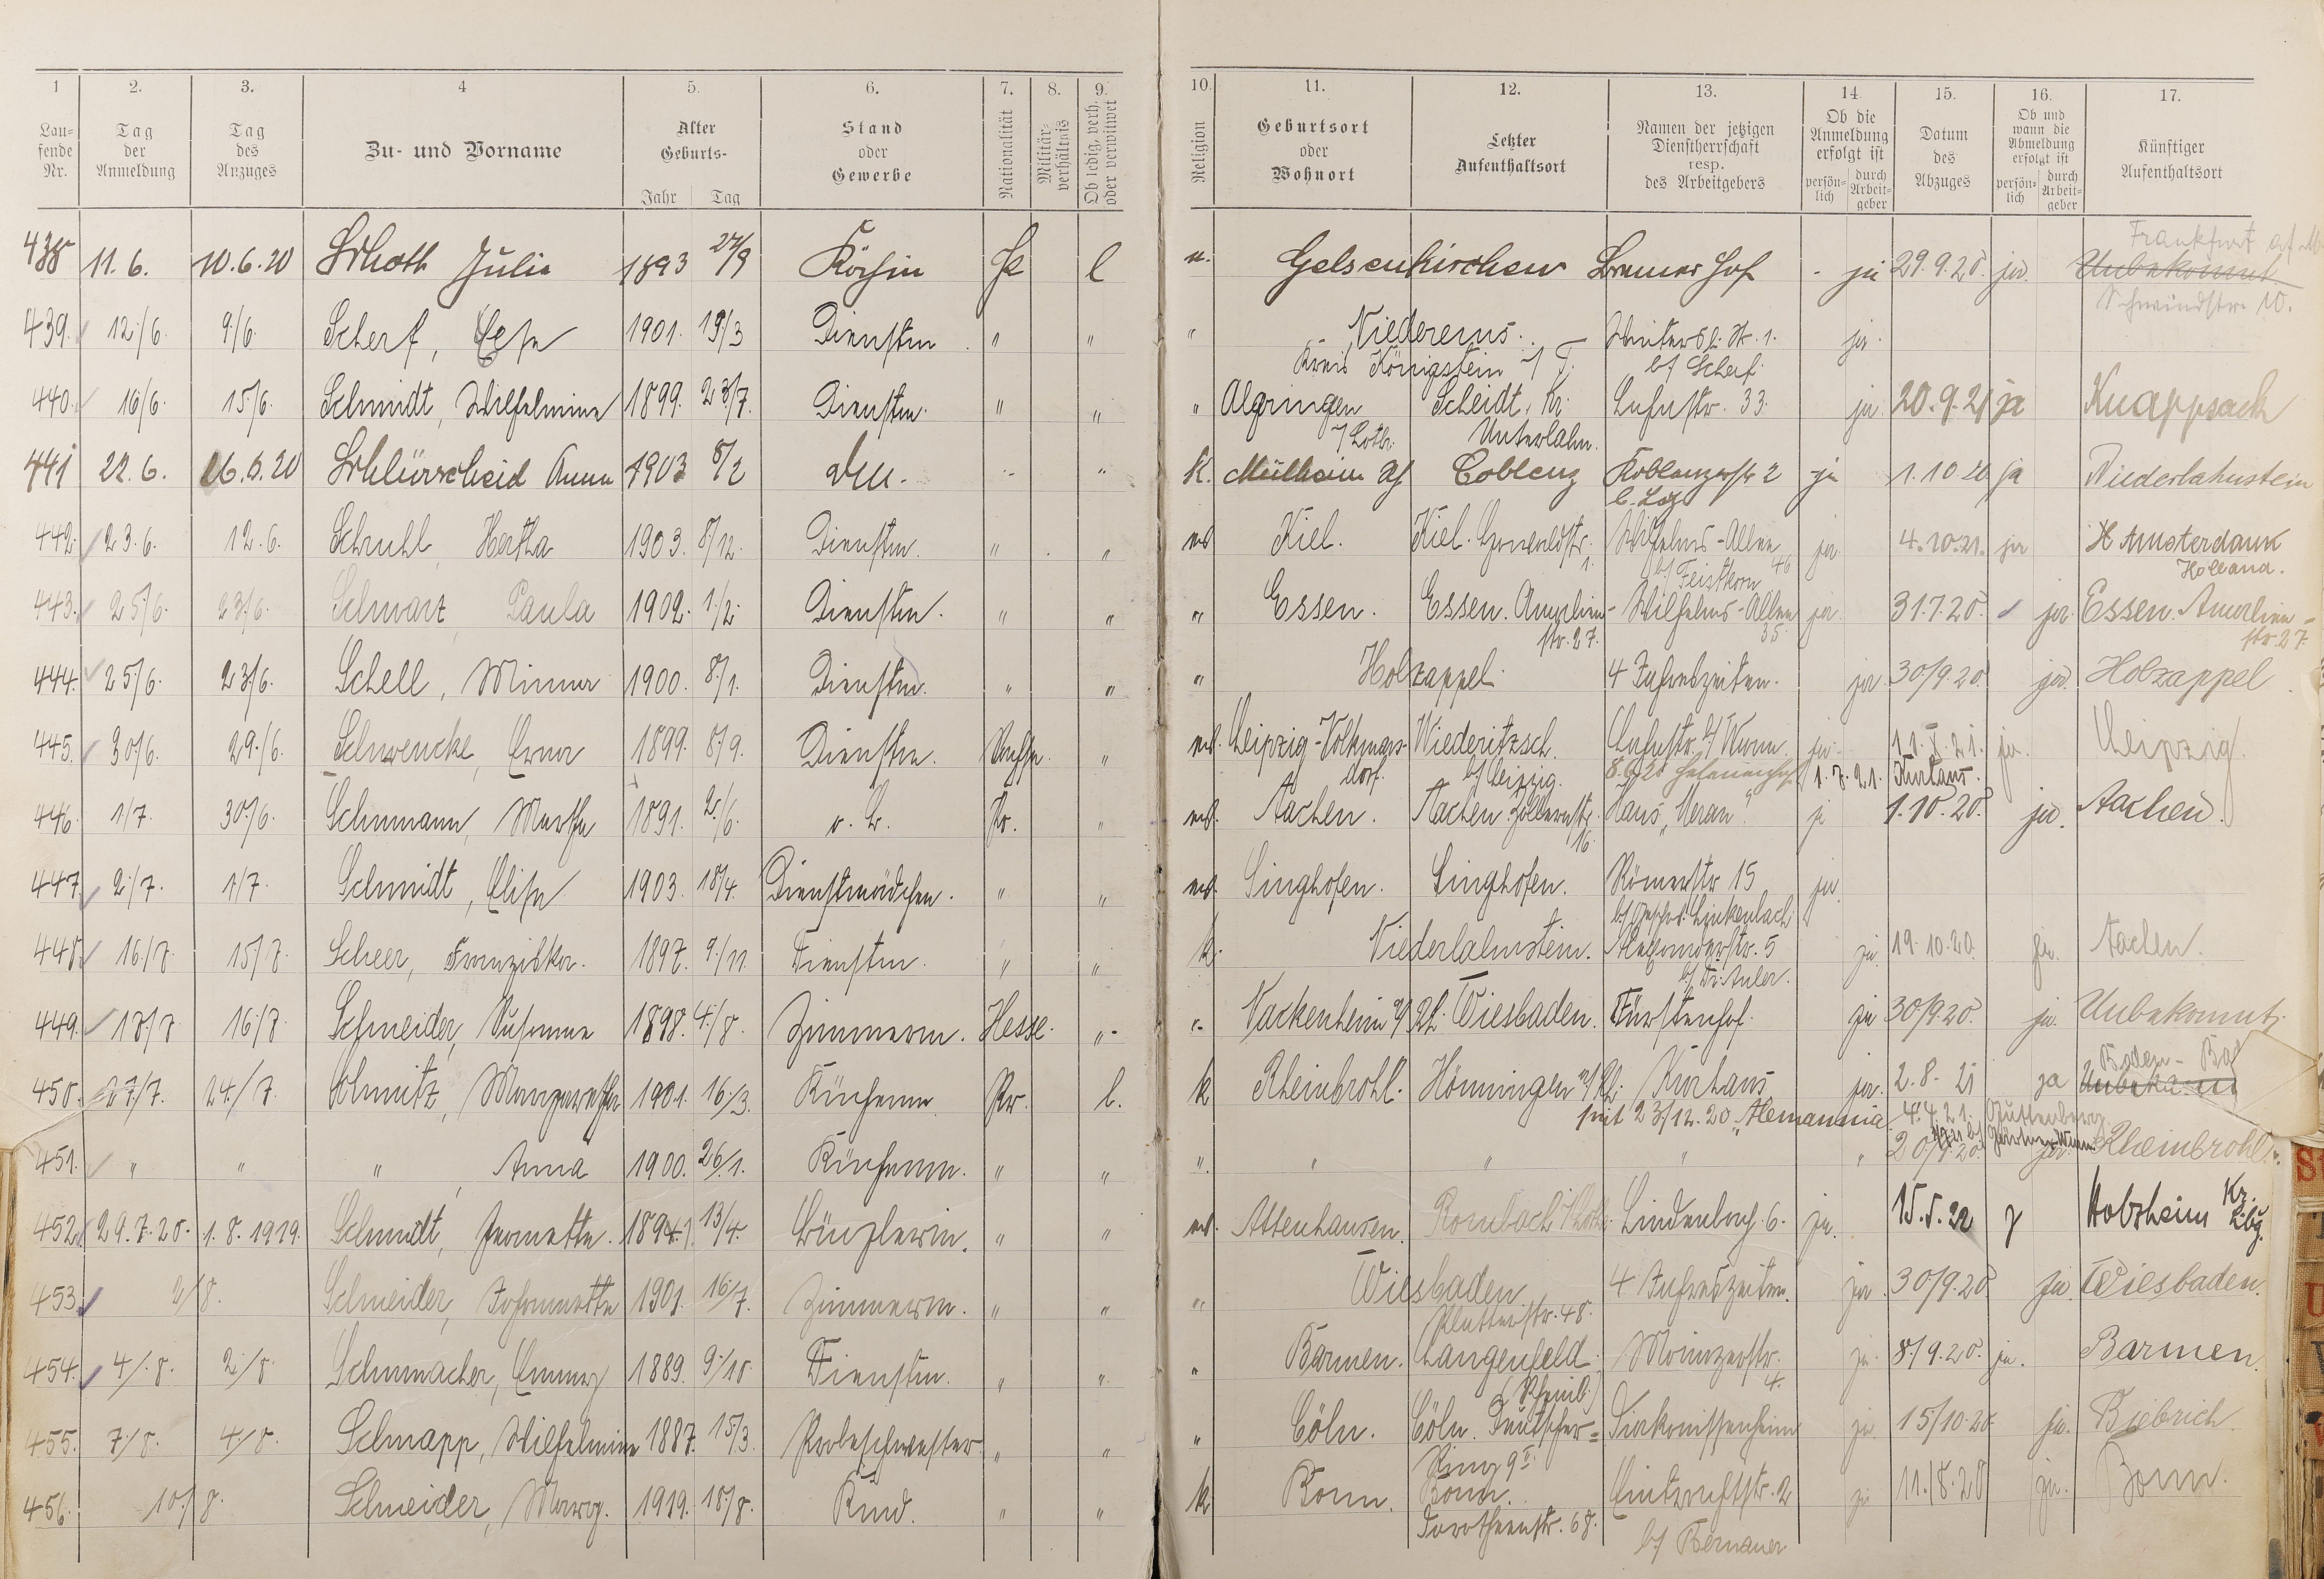 1 2. 3. 4 5. 6. 7. 8. 9. 10. 11. 12. 13. 14. 15. 16. 17.
Lau-
fende
Nr.
Tag
der
Anmeldung
Tag
des
Anzuges
Zu- und Vorname
Alter
Geburts-
Jahr Tag
Stand
oder
Gewerbe
Nationalität
Militär-
verhältnis
Ob ledig, verh.
oder verwitwet
Religion
Geburtsort
oder
Wohnort
Letzter
Aufenthaltsort
Namen der jetzigen
Dienstherrschaft
resp.
des Arbeitgebers
Ob die
Anmeldung
erfolgt ist
persön-
lich
durch
Arbeit-
geber
Datum
des
Abzuges
Ob und
wann die
Abmeldung
erfolgt ist
persön-
lich
durch
Arbeit-
geber
Künftiger
Aufenthaltsort
Frankfurt a/M
438 11. 6. 10. 6. 20 Schoth Julie 1893 27/9 Köchin l Gelsenkirchen Bremer Hof - ja 29. 9. 20. ja. Unbekannt
Schwindstr. 10.
439. 12./6. 9/6. Scherf, Else 1901. 19/3 Dienstm. " " " Niederems. Wintersb. St. 1. ja.
Kreis Königstein i/T. b/ Scherf
440. 16/6. 15./6. Schmidt, Wilhelmine 1899. 23./7. Dienstm. " " " Algringen Scheidt, Kr. Lahnstr. 33. ja. 20. 9. 21 ja Knappsack
i/Lothr. Unterlahn.
441 22. 6. 16. 6. 20 Schlürscheid Anna 1903 8/2 " K. Mülheim Coblenz Koblenzerstr 2 ja 1. 10 20. ja Niederlahnstein
442. 23. 6. 12. 6. Schuhl, Hertha 1903. 8./12. Dienstm. " " Kiel. Kiel. Wilhelms-Allee 46 ja. 4. 10. 21. ja Amsterdam
b/ Feistkorn Holland.
443. 25/6. 23./6. Schwarz, Paula 1902. 1./2. Dienstm. " " " Essen. Essen. Amalien- Wilhelms-Allee ja. 31. 7. 20. ja. Essen. Amalien-
str. 27. 35. str. 27.
444. 25/6. 23/6. Schell, Minna 1900. 8./1. Dienstm. " " " Holzappel. 4 Jahreszeiten. ja. 30/9. 20. ja. Holzappel
445. 30/6. 29./6. Schwencke, Erna 1899. 8/9. Dienstm. Sachse. " ev. Leipzig-Volkmars- Wiederitzsch. Lahnstr. b/ Wwe. ja. 11. 8. 21. ja. Leipzig
dorf. b/ Leipzig. 1. 7. 21. Kurhaus.
446. 1/7. 30./6. Schumann, Martha 1891. 2./6. o. B. Pr. " ev. Aachen. Aachen Zollernstr. Haus „Meran". ja 1. 10. 20. ja. Aachen.
16.
447. 2./7. 1/7. Schmidt, Elise 1903. 18/4. Dienstmädchen. " " ev. Singhofen. Singhofen. Römerstr 15 ja.
b/ Geschw. Linkenbach
448. 16./7. 15/7. Scheer, Franziska. 1897. 9./11. Dienstm. " " k. Niederlahnstein. Alexanderstr. 5 ja. 19. 10. 20. ja. Aachen.
b/ Dr. Auler.
449. 18/7 16/7. Schneider, Susanne 1898. 4./8. Zimmerm. Hesse. " Nackenheim a/Rh. Wiesbaden. Fürstenhof. ja 30/9 20. ja. Unbekannt.
Baden-Bad
450. 27/7. 24./7. Schmitz, Margaretha 1901. 16./3. Küchenm. Pr. l. k Rheinbrohl. Hönningen a/Rh. Kurhaus ja. 2. 8. 21 ja Unbekannt
seit 23/12. 20. „Alemannia 4. 4. 21. Guttenberg
451. " " " , Anna 1900. 26/1. Küchenm. " " " " " " " 20/9. 20. ja. Rheinbrohl.
452. 29. 7. 20. 1. 8. 1919. Schmidt, Jeanette. 1894. 13/4. Büglerin. " " ev. Attenhausen. Rombach i/Lothr. Lindenbach. 6. ja. 15. 5. 22 Holzheim Kr. Lbg.
453. 2/8. Schneider, Johannette 1901. 16./7. Zimmerm. " " " Wiesbaden 4 Jahreszeiten. ja. 30/9. 20 ja. Wiesbaden.
Platterstr. 48.
454. 4/. 8. 2./8. Schumacher, Emmy 1889. 9./10. Dienstm. " " " Barmen. Langenfeld Mainzerstr. ja. 8./9. 20. ja. Barmen.
(Rheinl.) 4.
455. 7/8. 4/8. Schnapp, Wilhelmine 1887. 15./3. Probeschwester " " " Cöln. Cöln. Deutscher= Diakonissenheim ja. 15/10. 20. ja. Biebrich
Ring 9 II.
456. 10./8. Schneider, Marg. 1919. 18./8. Kind. " " k Bonn. Bonn. Eintrachtstr. 2 ja 11./8. 20 ja. Bonn.
Dorotheenstr. 68. b/ Bernauer